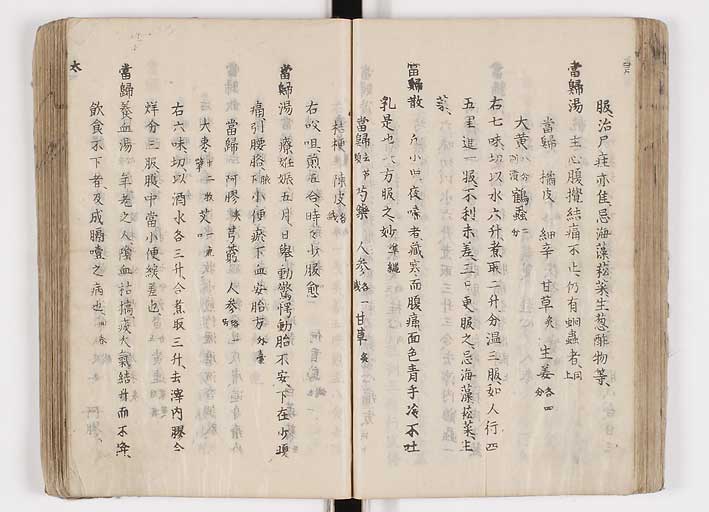 服治尸疰亦隹忌海藻菘菜生葱酢物等
當歸湯 主心腹攪結痛不止仍有蛔蟲者同上
當歸 橘皮 細辛 甘草炙 生姜各四分
大黄八分 鶴蝨二
右七味切以水六升煮取二升分温三服如人行四
五里進一服不利未差三日更服之忌海藻菘菜生
葱
當歸散 小兒夜啼者藏寒而腹痛面色青手冷不吐
乳是也方服之妙 準繩
當歸去 芍藥 人參各一 甘草炙
桔梗 陳皮各
右㕮咀煎五合時時少服愈
當歸湯 療姙娠五月日舉動驚愕動胎不安下在少腹
痛引腰胳小便疾下血安胎方 外臺
當歸 阿膠炙 芎藭 人參各
大棗十二枚 艾一
右六味切以酒水各三升合煮取三升去滓内膠令
烊分三服腹中當小便緩差也
當歸養血湯 年老之人陰血枯槁痰火氣結升而不降
飲食不下者及成膈噎之病也 回春
太